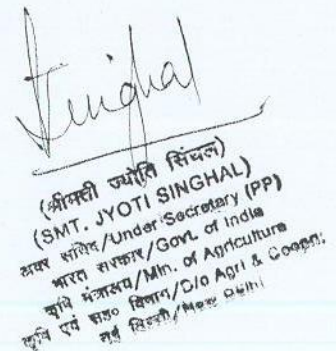 Singhal
(श्रीमती ज्योति सिंघल)
(SMT. JYOTI SINGHAL)
अवर सचिव/Under Secretary (PP)
भारत सरकार/Govt. of India
कृषि मंत्रालय/Min. of Agriculture
कृषि एवं सह० विभाग/D/o Agri & Coopn:
नई दिल्ली/New Delhi